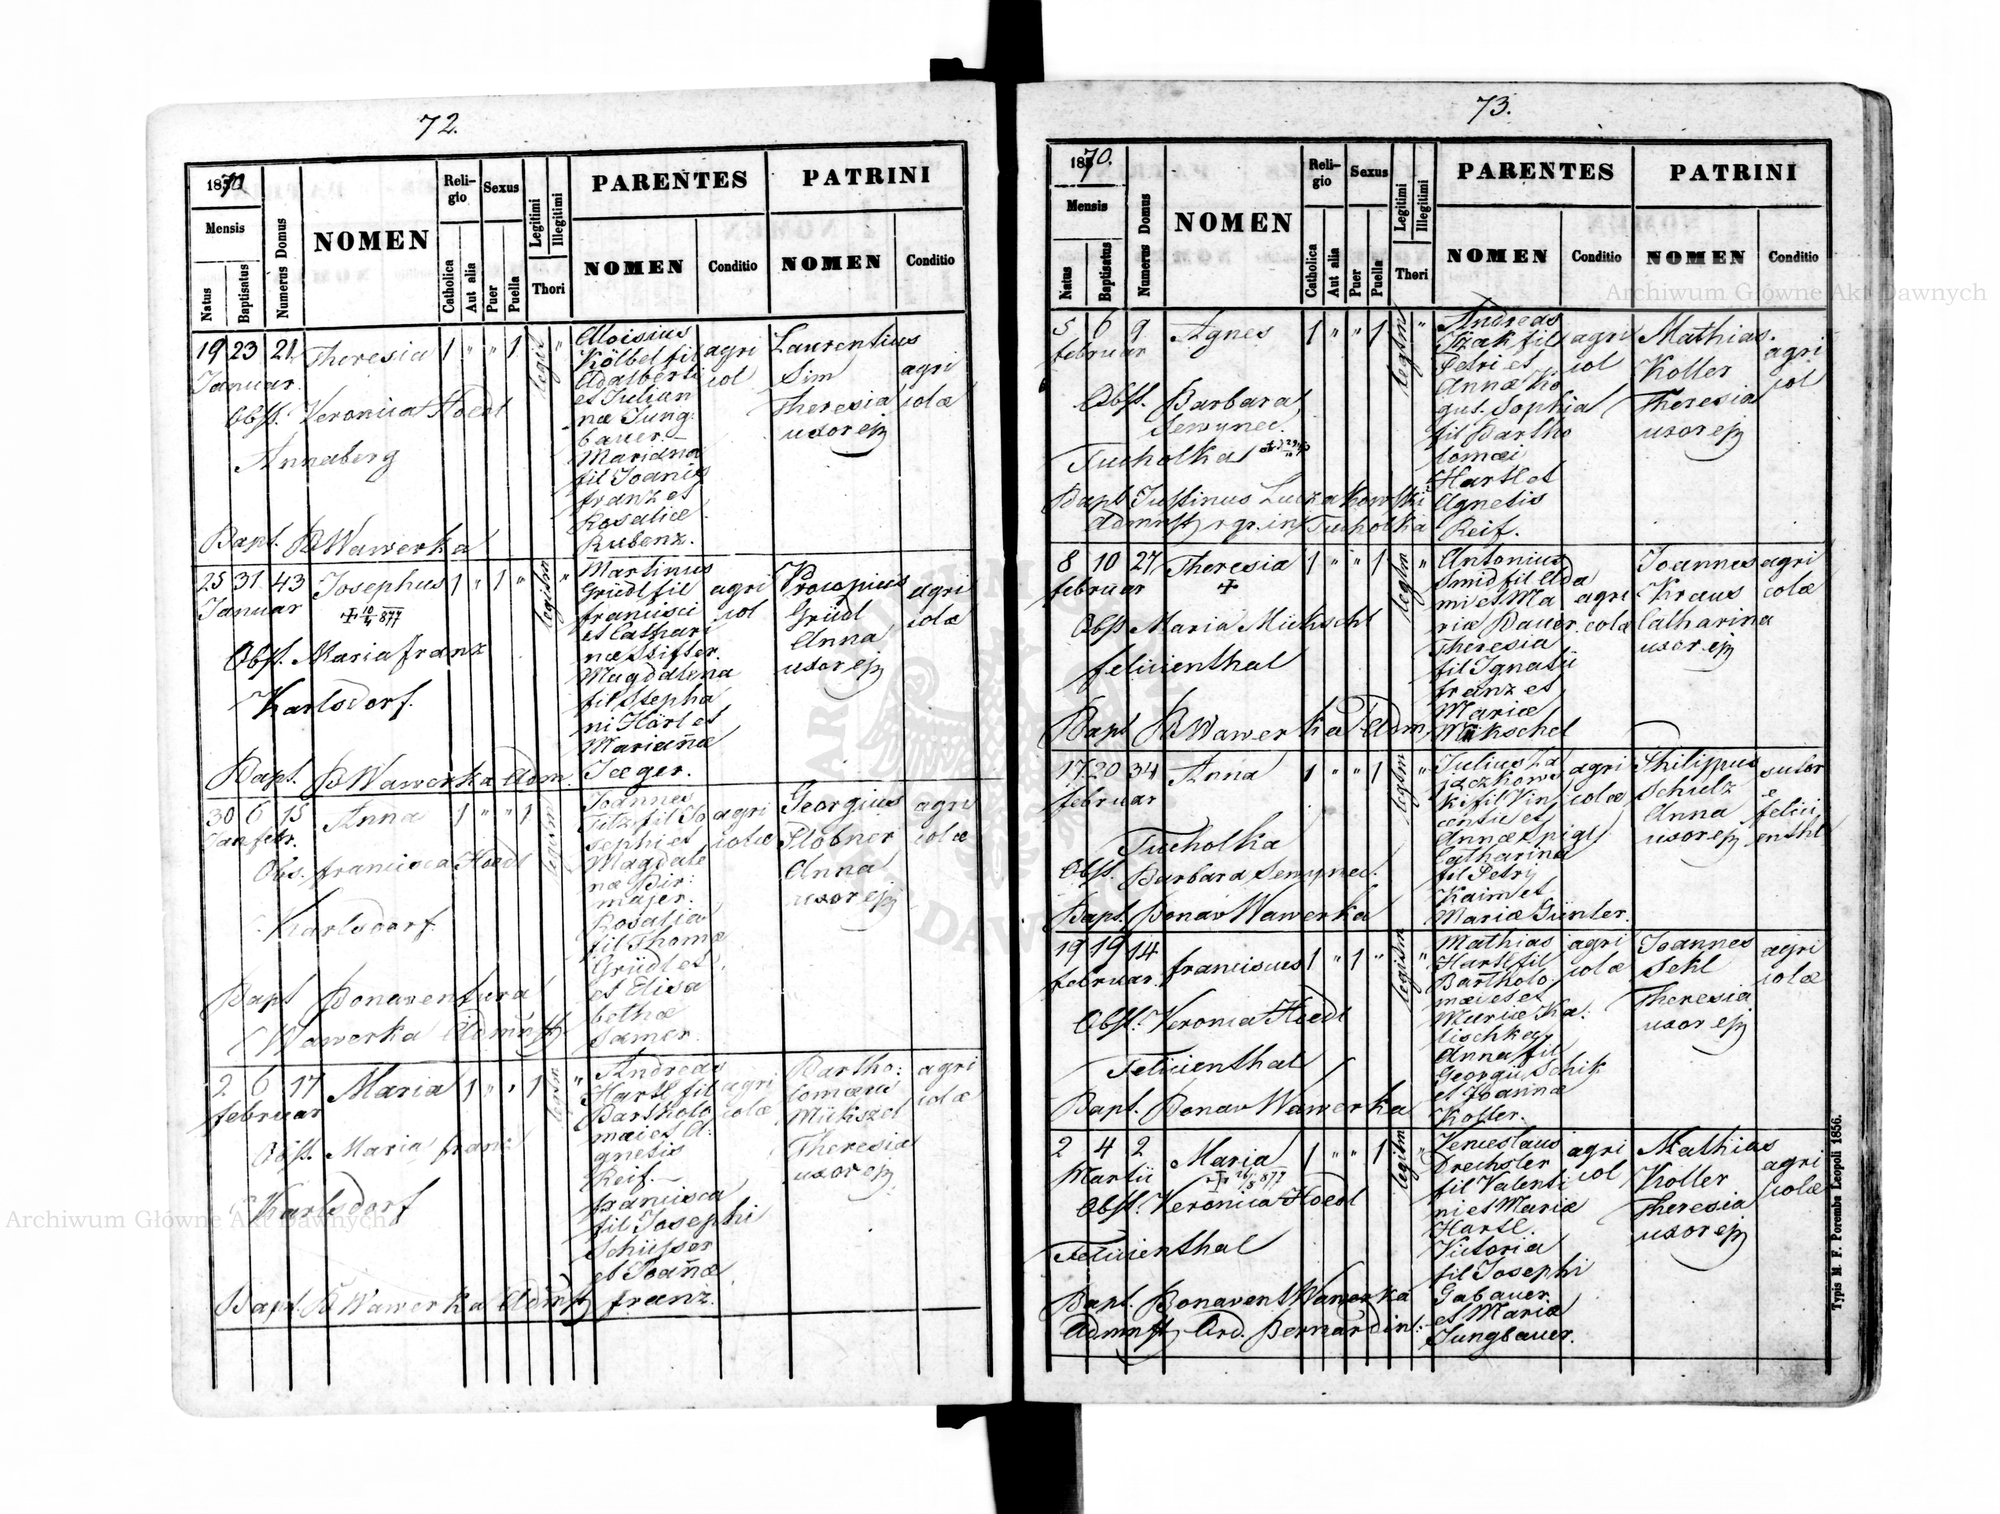 72.
1870
Mensis
Natus
Baptisatus
Numerus Domus
NOMEN
Religio
Catholica
Aut alia
Sexus
Puer
Puella
Legitimi
Illegitimi
Thori
PARENTES
NOMEN
Conditio
PATRINI
NOMEN
Conditio
19 23 21 Theresia 1 " " 1 legit "
Januar.
Obst. Veronica Hoedl
Annaberg
Bapt. B Wawerka
Aloisius
Kölbel fil
Adalberti
et Julian
næ Jung
bauer.
Mariana
fil Joanis
Franz et
Rosaliæ
Rubenz.
agri
col
Laurentius
Sim
Theresia
uxor ej
agri
colæ
25 31 43 Josephus 1 " 1 " legitm "
Januar
Obst. Maria Franz
Karlsdorf.
Bapt. B Wawerka Adm.
Martinus
Gründl fil
Francisci
et Cathari
næ Stifter.
Magdalena
fil Stepha
ni Härl et
Marianæ
Jæger.
agri
col
Procopius
Gründl
Anna
uxor ej
agri
colæ
30 6 15 Anna 1 " " 1 legitm
Jan febr.
Obs. Francisca Hoedl
Karlsdorf
Bapt Bonaventura
Wawerka Admnst
Joannes
Titz fil Jo
sephi et
Magdale
næ Bir:
majer.
Rosalia
fil Thomæ
Gründl et
et Elisa
bethæ
Samer.
agri
colæ
Georgius
Plöbner
Anna
uxor ej
agri
colæ
2 6 17 Maria 1 " " 1 legitm "
Februar
Obst. Maria Franz
Karlsdorf
Bapt. B Wawerka Admst
Andreas
Hartl fil
Bartholo
mæi et A:
gnetis
Reif.
Francisca
fil Josephi
Schüsser
et Joanæ
Franz.
agri
colæ
Bartho:
lomæus
Mükschel
Theresia
uxor ej
agri
colæ
73.
1870.
Mensis
Natus
Baptisatus
Numerus Domus
NOMEN
Religio
Catholica
Aut alia
Sexus
Puer
Puella
Legitimi
Illegitimi
Thori
PARENTES
NOMEN
Conditio
PATRINI
NOMEN
Conditio
5 6 9 Agnes 1 " " 1 legitm "
Februar
Obst. Barbara
Semynec.
Tucholka
Bapt Justinus Luczakowski
Admnst r gr. in Tucholka
Andreas
Izak fil
Petri et
Annæ Ko
gut. Sophia
fil Bartho
lomæi
Hartl et
Agnetis
Reif.
agri
col
Mathias
Koller
Theresia
uxor ej
agri
col
8 10 27 Theresia 1 " " 1 legtm "
Februar
Obst Maria Mickschl
Felicienthal
Bapt B Wawerka Adm.
Antonius
Smid fil Ada
mi et Ma
riæ Bauer.
Theresia
fil Ignatii
Franz et
Mariæ
Mükschel
agri
colæ
Joannes
Kraus
Catharina
uxor ej
agri
colæ
17 20 34 Anna 1 " " 1 legitm "
Februar
Tucholka
Obst. Barbara Semynec.
Bapt. Bonav Wawerka
Julius Za
jaczkows
ki fil Vin
centii et
Annæ Spigl
Catharina
fil Petri
Kaim et
Mariæ Günter.
agri
colæ
Philippus
Schulz
Anna
uxor ej
sutor
e
felici
enthl
19 19 14 Franciscus 1 " 1 " legitm "
Februar.
Obst. Veronica Hoedl
Felicienthal
Bapt. Bonav Wawerka
Mathias
Hartl fil
Bartholo
mæi et
Mariæ Ka:
lischka
Anna fil
Georgii Schik
et Joannæ
Koller.
agri
colæ
Joannes
Sekl
Theresia
uxor ej
agri
colæ
2 4 2 Maria 1 " " 1 legitm "
Martii
Obst. Veronica Hoedl
Felicienthal
Bapt. Bonavent Wawerka
Admnst Ord. Bernardin:
Venceslaus
Drechsler
fil Valenti
ni et Mariæ
Hartl.
Victoria
fil Josephi
Gabauer.
et Mariæ
Jungbauer.
agri
col
Mathias
Koller
Theresia
uxor ej
agri
colæ
Typis M. F. Poremba Leopoli 1856.
Archiwum Główne Akt Dawnych
Archiwum Główne Akt Dawnych